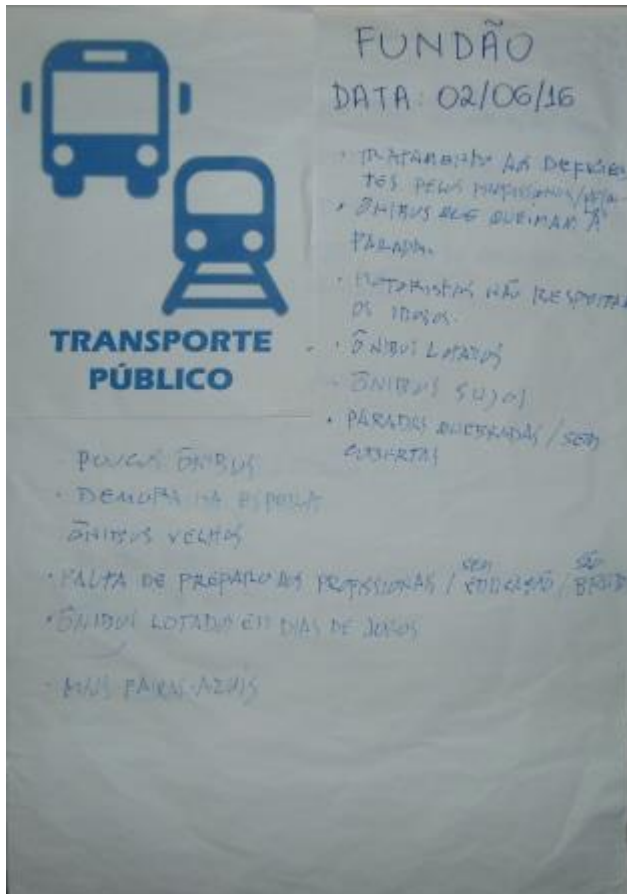 FUNDÃO
DATA: 02/06/16
TRANSPORTE
PÚBLICO
• TRATAMENTO AOS DEFICIEN
TES PELOS PROFISSIONAIS/
• ÔNIBUS QUE QUEIMAM A
PARADA.
• MOTORISTAS NÃO RESPEITAM
OS IDOSOS.
• ÔNIBUS LOTADOS
• ÔNIBUS SUJOS
• PARADAS QUEBRADAS / SEM
COBERTAS
• POUCOS ÔNIBUS
• DEMORA NA ESPERA
ÔNIBUS VELHOS
• FALTA DE PREPARO DOS PROFISSIONAIS / SEM EDUCAÇÃO / SÃO
• ÔNIBUS LOTADOS EM DIAS DE JOGOS
• MAIS FAIXAS AZUIS